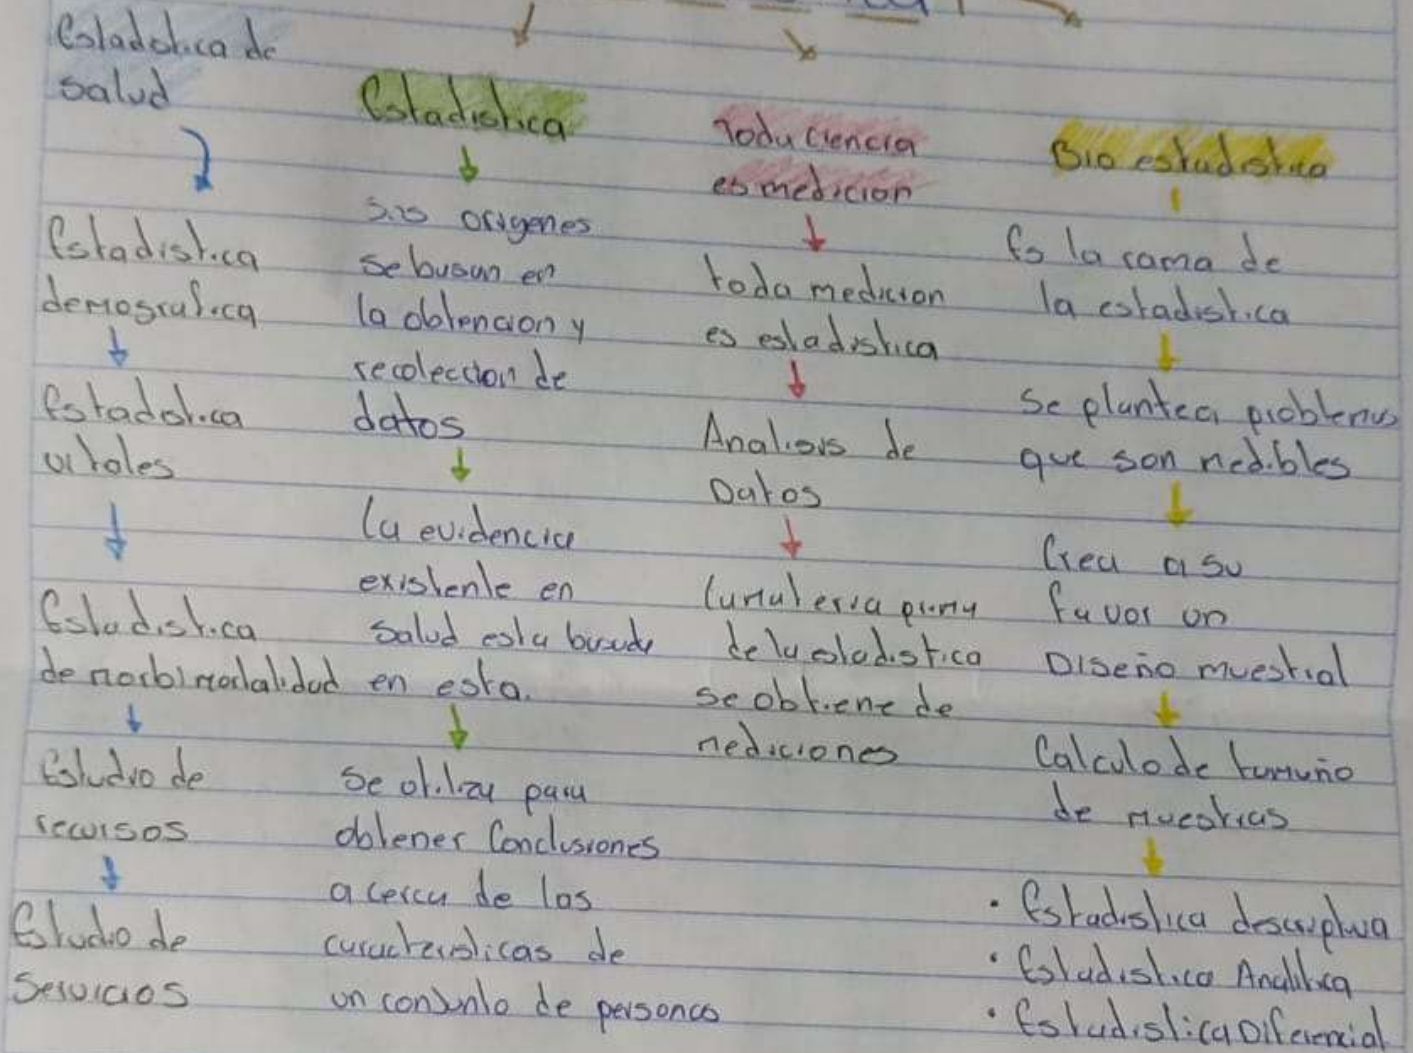 Estadistica de
salud
Estadistica
demografica
Estadistica
vitales
Estadistica
de morbimortalidad
Estudio de
recursos
Estudio de
Servicios
Estadistica
sus origenes
se busan en
la obtencion y
recoleccion de
datos
la evidencia
existente en
salud esta basada
en esta.
se utiliza para
obtener Conclusiones
acerca de las
caracteristicas de
un conjunto de personas
Toda Ciencia
es medicion
toda medicion
es estadistica
Analisis de
Datos
la materia prima
de la estadistica
se obtiene de
mediciones
Bio estadistica
Es la rama de
la estadistica
Se plantea problemas
que son medibles
Crea a su
favor un
Diseño muestral
Calculo de tamaño
de muestras
· Estadistica descriptiva
· Estadistica Analitica
· Estadistica Diferencial